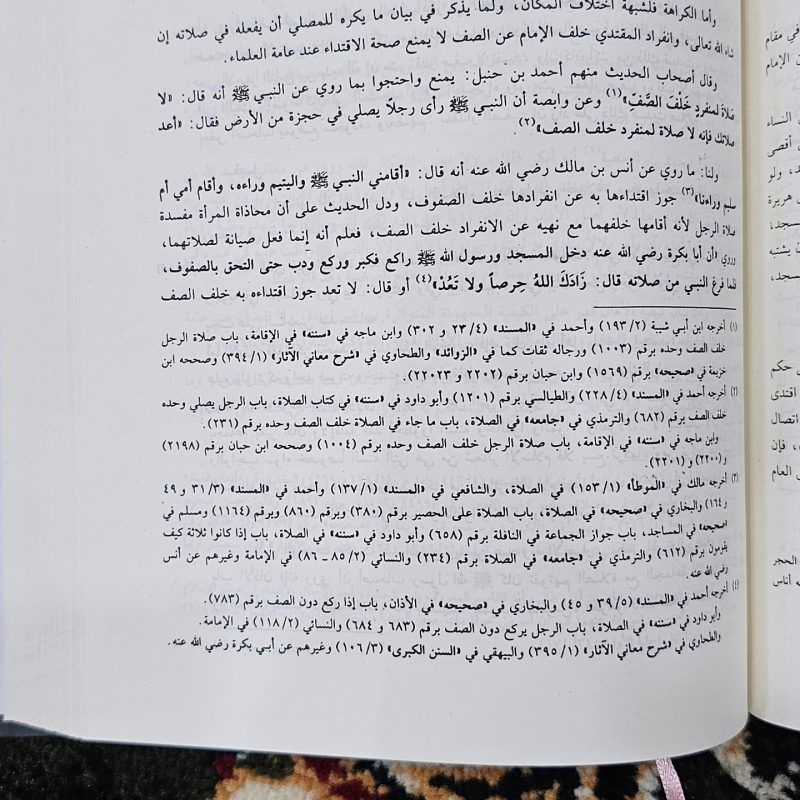 وأما الكراهة فلشبهة اختلاف المكان، ولما يذكر في بيان ما يكره للمصلي أن يفعله في صلاته إن
شاء الله تعالى، وانفراد المقتدي خلف الإمام عن الصف لا يمنع صحة الاقتداء عند عامة العلماء.
وقال أصحاب الحديث منهم أحمد بن حنبل: يمنع واحتجوا بما روي عن النبي ﷺ أنه قال: «لا
صَلاةَ لمنفردٍ خَلْفَ الصَّفِّ»(١) وعن وابصة أن النبي ﷺ رأى رجلاً يصلي في حجزة من الأرض فقال: «أعد
صلاتك فإنه لا صلاة لمنفرد خلف الصف»(٢).
ولنا: ما روي عن أنس بن مالك رضي الله عنه أنه قال: «أقامني النبي ﷺ واليتيم وراءه، وأقام أمي أم
سليم وراءنا»(٣) جوز اقتداءها به عن انفرادها خلف الصفوف، ودل الحديث على أن محاذاة المرأة مفسدة
صلاة الرجل لأنه أقامها خلفهما مع نهيه عن الانفراد خلف الصف، فعلم أنه إنما فعل صيانة لصلاتهما،
وروي «أن أبا بكرة رضي الله عنه دخل المسجد ورسول الله ﷺ راكع فكبر وركع ودب حتى التحق بالصفوف،
فلما فرغ النبي من صلاته قال: زَادَكَ اللهُ حِرصاً ولا تَعُدْ»(٤) أو قال: لا تعد جوز اقتداءه به خلف الصف
(١) أخرجه ابن أبي شيبة (١٩٣/٢) وأحمد في «المسند» (٢٣/٤ و ٣٠٢) وابن ماجه في «سننه» في الإقامة، باب صلاة الرجل
خلف الصف وحده برقم (١٠٠٣) ورجاله ثقات كما في «الزوائد» والطحاوي في «شرح معاني الآثار» (٣٩٤/١) وصححه ابن
خزيمة في «صحيحه» برقم (١٥٦٩) وابن حبان برقم (٢٢٠٢ و ٢٢٠٢٣).
(٢) أخرجه أحمد في «المسند» (٢٢٨/٤) والطيالسي برقم (١٢٠١) وأبو داود في «سننه» في كتاب الصلاة، باب الرجل يصلي وحده
خلف الصف برقم (٦٨٢) والترمذي في «جامعه» في الصلاة، باب ما جاء في الصلاة خلف الصف وحده برقم (٢٣١).
وابن ماجه في «سننه» في الإقامة، باب صلاة الرجل خلف الصف وحده برقم (١٠٠٤) وصححه ابن حبان برقم (٢١٩٨)
و(٢٢٠٠) و(٢٢٠١).
(٣) أخرجه مالك في «الموطأ» (١٥٣/١) في الصلاة، والشافعي في «المسند» (١٣٧/١) وأحمد في «المسند» (٣١/٣ و ٤٩
و١٦٤) والبخاري في «صحيحه» في الصلاة، باب الصلاة على الحصير برقم (٣٨٠) وبرقم (٨٦٠) وبرقم (١١٦٤) ومسلم في
«صحيحه» في المساجد، باب جواز الجماعة في النافلة برقم (٦٥٨) وأبو داود في «سننه» في الصلاة، باب إذا كانوا ثلاثة كيف
يقومون برقم (٦١٢) والترمذي في «جامعه» في الصلاة برقم (٢٣٤) والنسائي (٨٥/٢ - ٨٦) في الإمامة وغيرهم عن أنس
رضي الله عنه.
(٤) أخرجه أحمد في «المسند» (٣٩/٥ و ٤٥) والبخاري في «صحيحه» في الأذان، باب إذا ركع دون الصف برقم (٧٨٣).
وأبو داود في «سننه» في الصلاة، باب الرجل يركع دون الصف برقم (٦٨٣ و ٦٨٤) والنسائي (١١٨/٢) في الإمامة.
والطحاوي في «شرح معاني الآثار» (٣٩٥/١) والبيهقي في «السنن الكبرى» (١٠٦/٣) وغيرهم عن أبي بكرة رضي الله عنه.